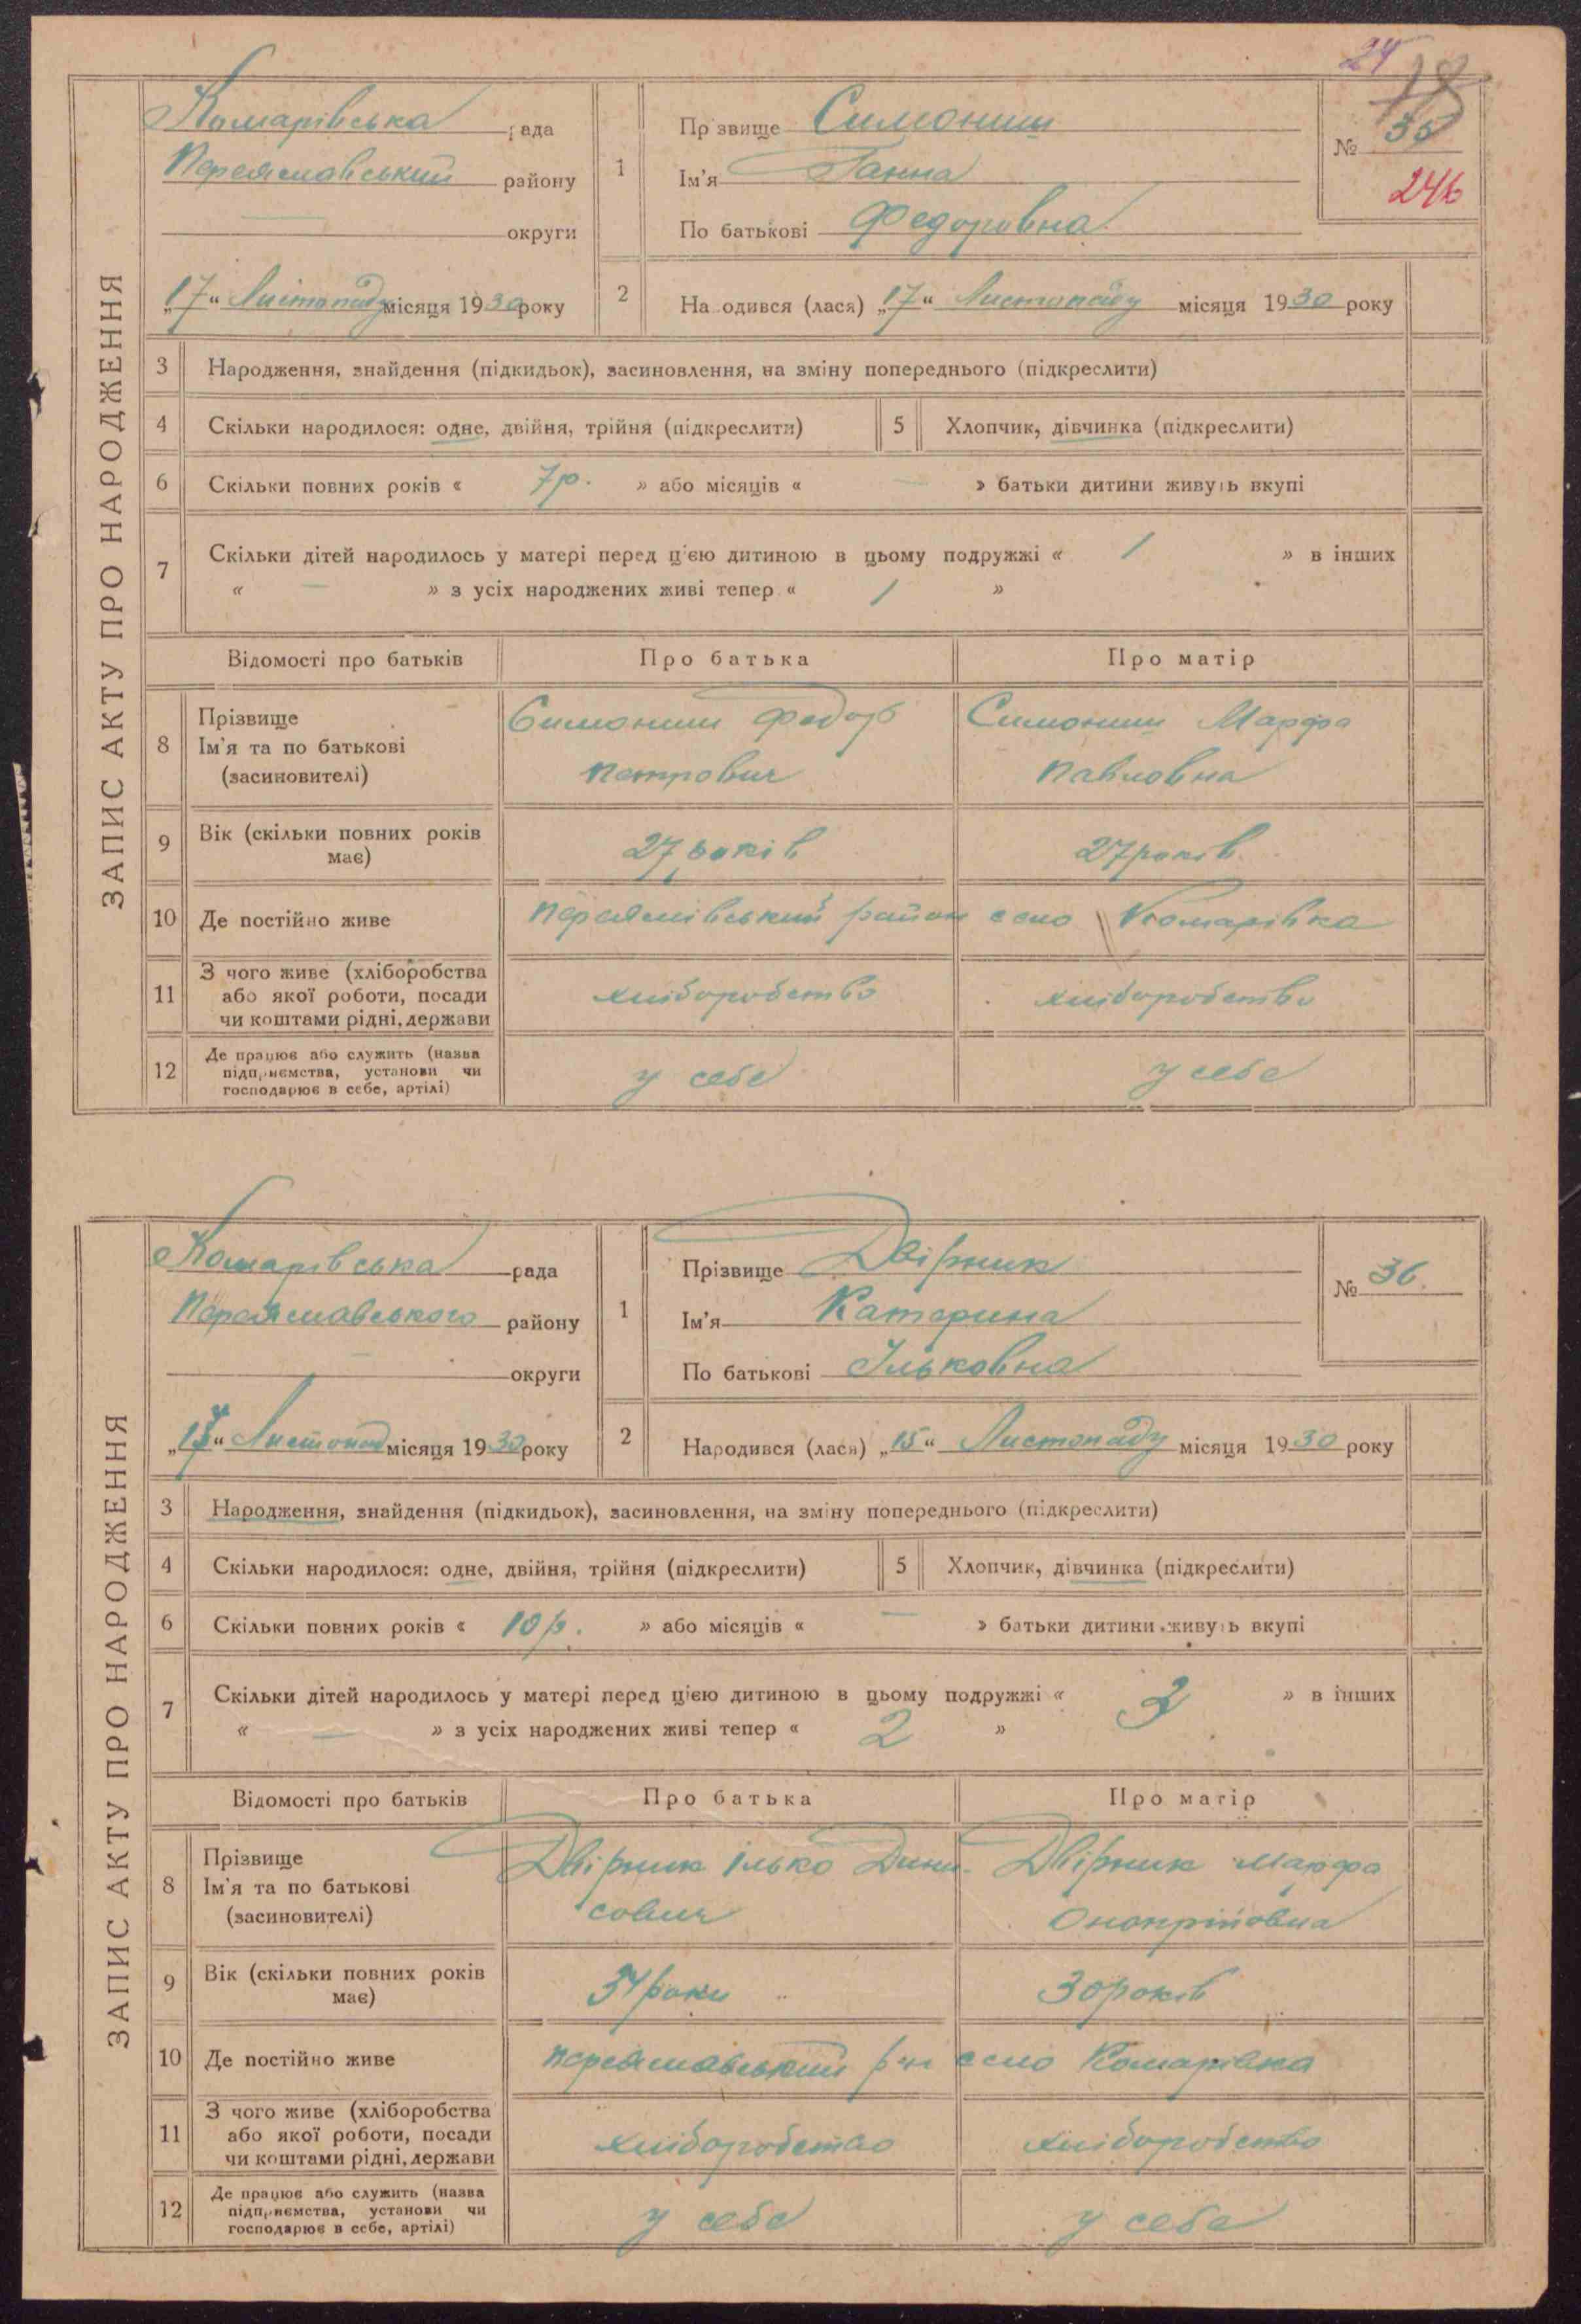 24
ЗАПИС АКТУ ПРО НАРОДЖЕННЯ
Комарівська рада
Переяславський району
округи
„17“ Листопаду місяця 1930 року
1
Прізвище Симониш
Ім'я Ганна
По батькові Федоровна
№ 35
246
2
Народився (лася) „17“ Листопаду місяця 1930 року
3 Народження, знайдення (підкидьок), засиновлення, на зміну попереднього (підкреслити)
4 Скільки народилося: одне, двійня, трійня (підкреслити) 5 Хлопчик, дівчинка (підкреслити)
6 Скільки повних років « 7р. » або місяців « — » батьки дитини живуть вкупі
7 Скільки дітей народилось у матері перед цією дитиною в цьому подружжі « 1 » в інших
« — » з усіх народжених живі тепер « 1 »
Відомості про батьків Про батька Про матір
8 Прізвище
Ім'я та по батькові
(засиновителі)
Симониш Федор
Петрович
Симониш Марфа
Павловна
9 Вік (скільки повних років
має)
27 років 27 років
10 Де постійно живе Переяслівський район село Комарівка
11 З чого живе (хліборобства
або якої роботи, посади
чи коштами рідні, держави
хліборобство хліборобство
12 Де працює або служить (назва
підприємства, установи чи
господарює в себе, артілі)
у себе у себе
ЗАПИС АКТУ ПРО НАРОДЖЕННЯ
Комарівська рада
Переяславського району
округи
„17“ Листопад місяця 1930 року
1
Прізвище Двірник
Ім'я Катерина
По батькові Ільковна
№ 36.
2
Народився (лася) „15“ Листопаду місяця 1930 року
3 Народження, знайдення (підкидьок), засиновлення, на зміну попереднього (підкреслити)
4 Скільки народилося: одне, двійня, трійня (підкреслити) 5 Хлопчик, дівчинка (підкреслити)
6 Скільки повних років « 10р. » або місяців « — » батьки дитини живуть вкупі
7 Скільки дітей народилось у матері перед цією дитиною в цьому подружжі « » в інших
« — » з усіх народжених живі тепер « 2 »
Відомості про батьків Про батька Про матір
8 Прізвище
Ім'я та по батькові
(засиновителі)
Двірник Ілько Дени-
сович
Двірник Марфа
Онопрійовна
9 Вік (скільки повних років
має)
34 роки 30 років
10 Де постійно живе Переяславський р-н село Комарівка
11 З чого живе (хліборобства
або якої роботи, посади
чи коштами рідні, держави
хліборобство хліборобство
12 Де працює або служить (назва
підприємства, установи чи
господарює в себе, артілі)
у себе у себе